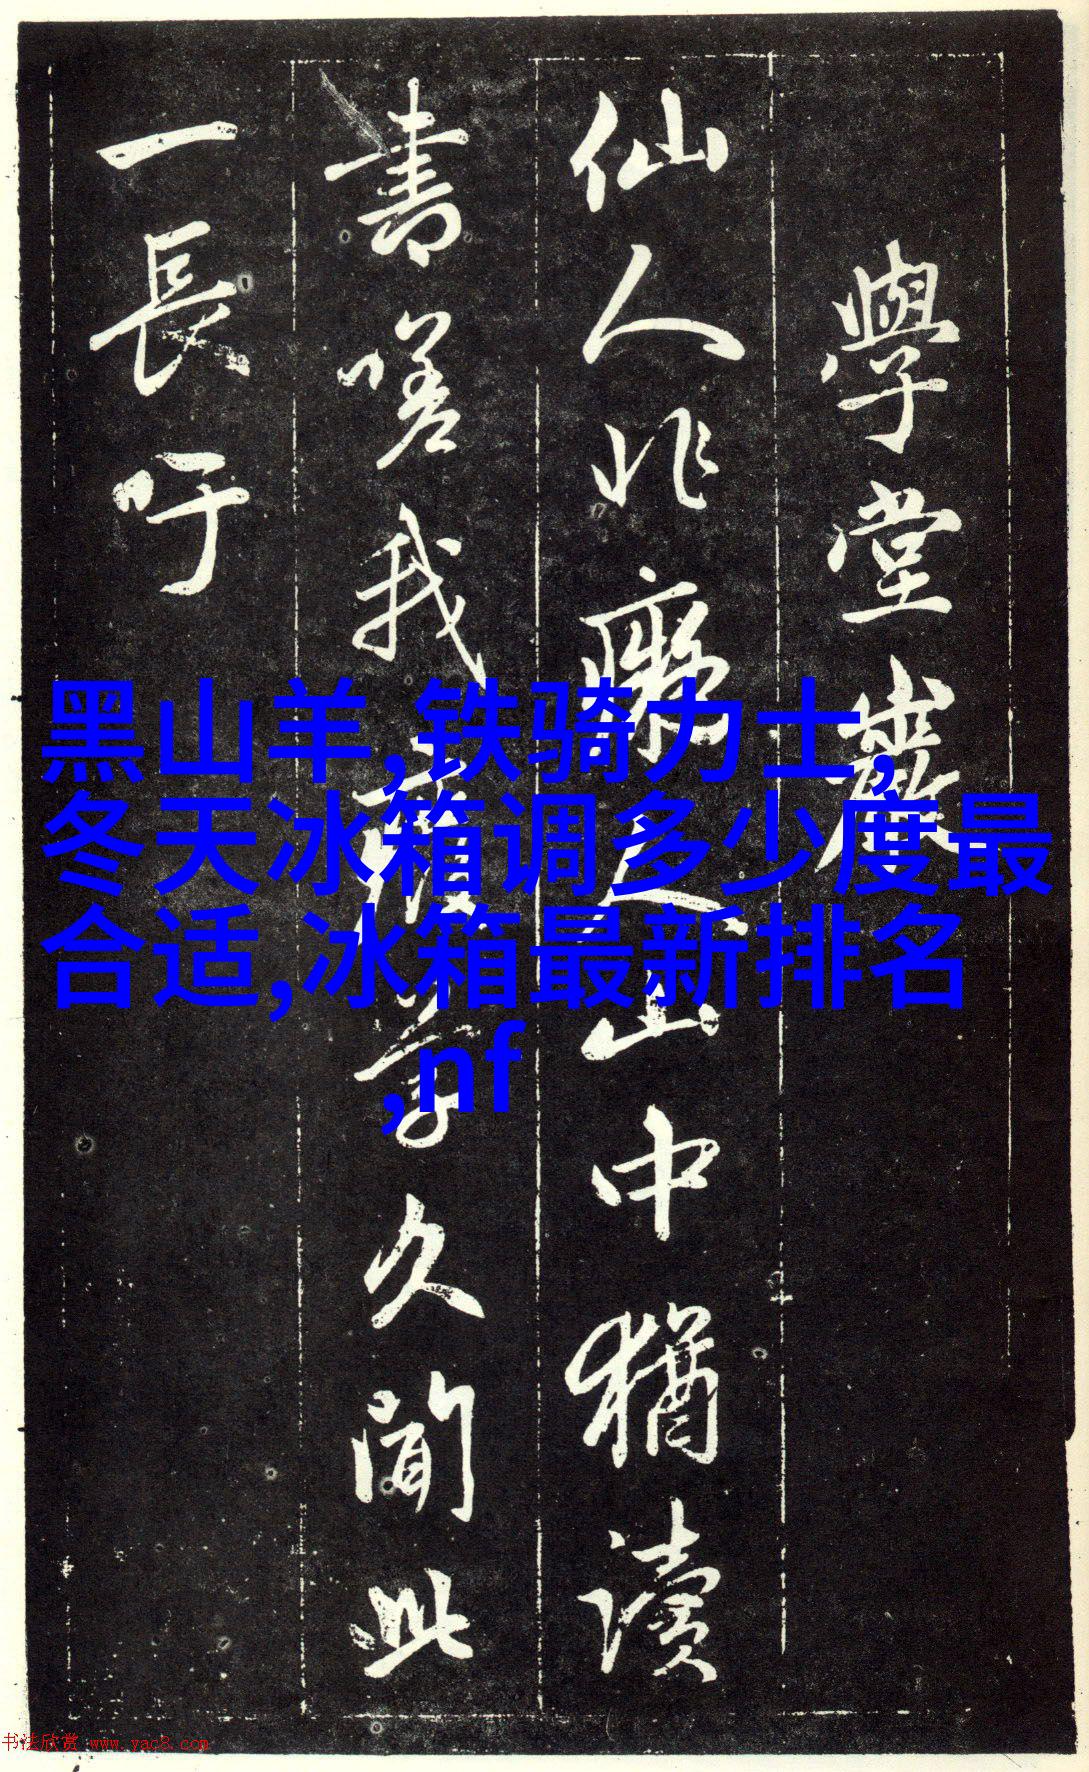 學堂巖
仙人非癖人山中猶讀
書嗟我廢學久聞此
一長吁
黑山羊,铁骑力士,
冬天冰箱调多少度最
合适,冰箱最新排名
,nf
书法欣赏 www.yac8.com